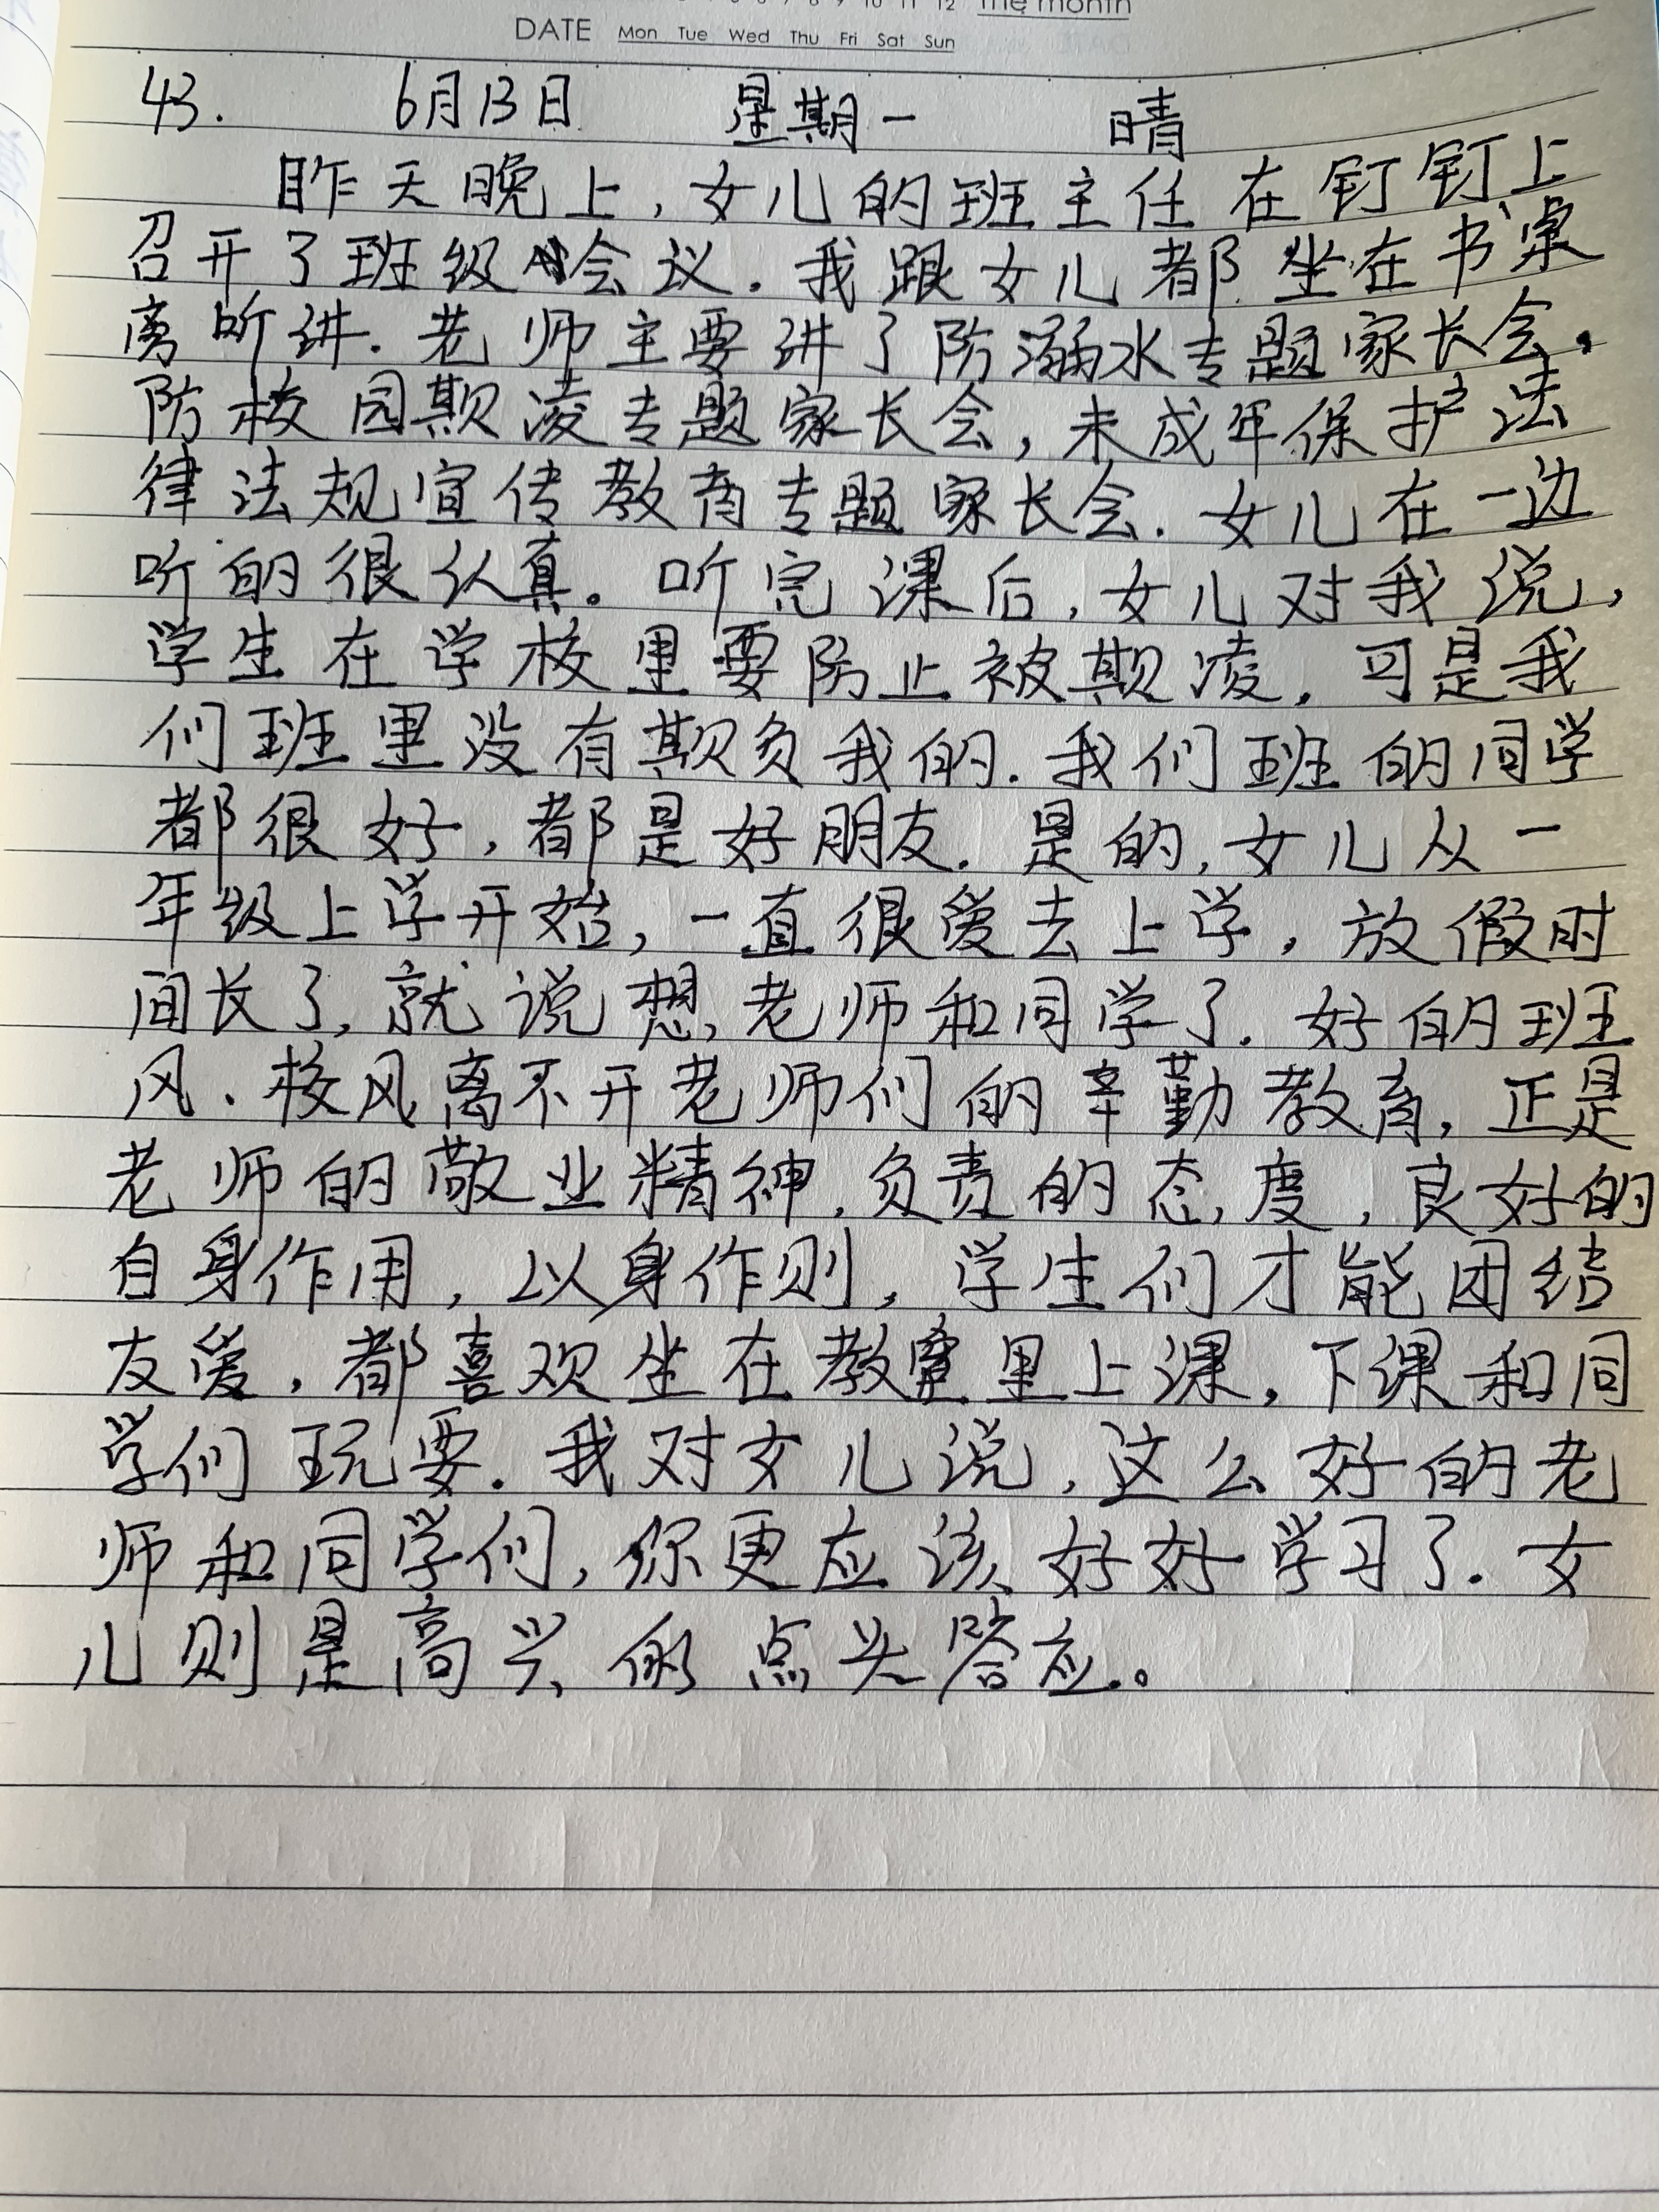 DATE Mon Tue Wed Thu Fri Sat Sun
43. 6月13日 星期一 晴
昨天晚上,女儿的班主任在钉钉上
召开了班级会议.我跟女儿都坐在书桌
旁听讲.老师主要讲了防溺水专题家长会,
防校园欺凌专题家长会,未成年保护法
律法规宣传教育专题家长会.女儿在一边
听的很认真。听完课后,女儿对我说,
学生在学校里要防止被欺凌,可是我
们班里没有欺负我的.我们班的同学
都很好,都是好朋友.是的,女儿从一
年级上学开始,一直很爱去上学,放假时
间长了,就说想老师和同学了.好的班
风.校风离不开老师们的辛勤教育,正是
老师的敬业精神,负责的态度,良好的
自身作用,以身作则,学生们才能团结
友爱,都喜欢坐在教室里上课,下课和同
学们玩耍.我对女儿说,这么好的老
师和同学们,你更应该好好学习了.女
儿则是高兴的点头答应。